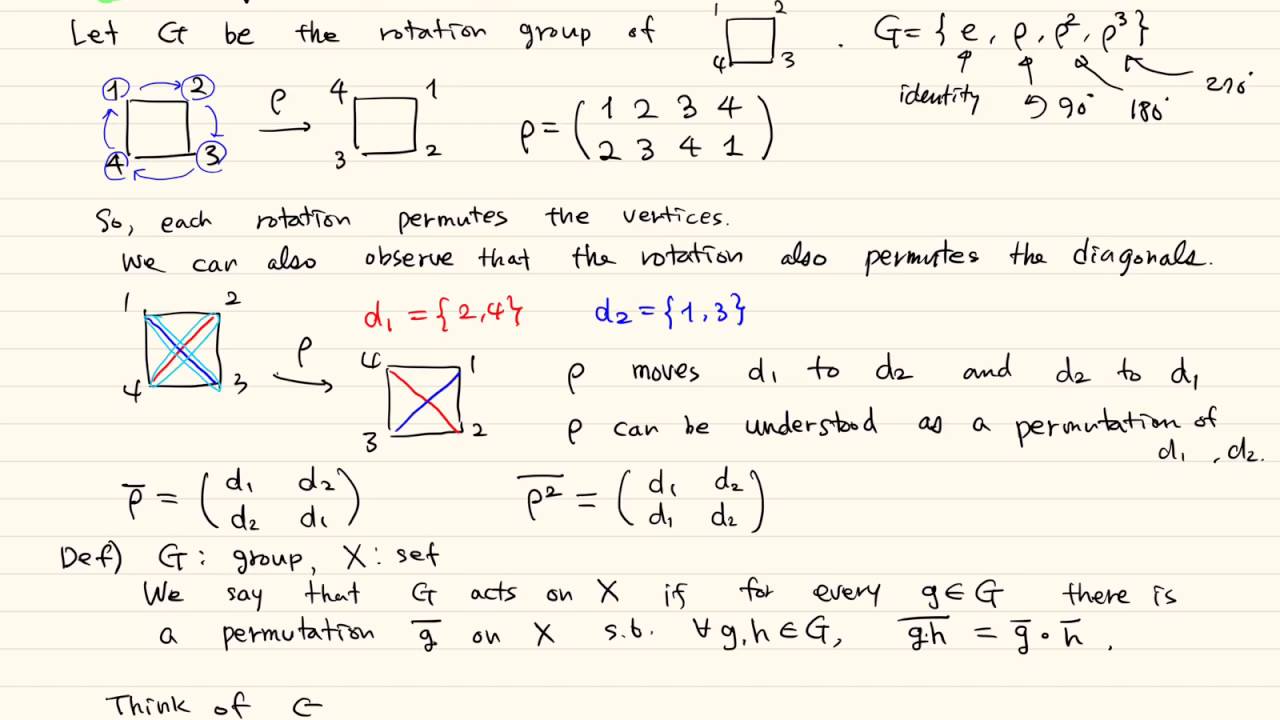 Let G be the rotation group of 1 2 4 3 . G = { e, ρ, ρ², ρ³ }
identity ↺ 90° 180° 270°
1 2 4 3 ρ → 4 1 3 2 ρ = ( 1 2 3 4
2 3 4 1 )
So, each rotation permutes the vertices.
We can also observe that the rotation also permutes the diagonals.
d₁ = {2,4} d₂ = {1,3}
1 2 4 3 ρ → 4 1 3 2 ρ moves d₁ to d₂ and d₂ to d₁
ρ can be understood as a permutation of
d₁ , d₂.
ρ̅ = ( d₁ d₂
d₂ d₁ )
ρ̅²̅ = ( d₁ d₂
d₁ d₂ )
Def) G : group, X : set
We say that G acts on X if for every g ∈ G there is
a permutation g̅ on X s.t. ∀ g, h ∈ G, g̅·̅h̅ = g̅ • h̅ .
Think of